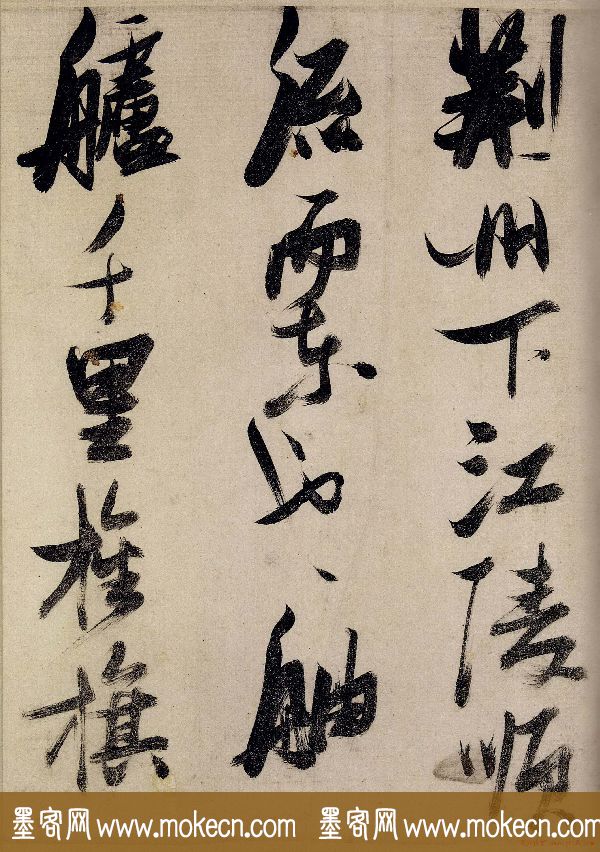 荊州下江陵順
流而東也舳
艫千里旌旗
墨客网 www.mokecn.com 墨客网 www.mokecn.com